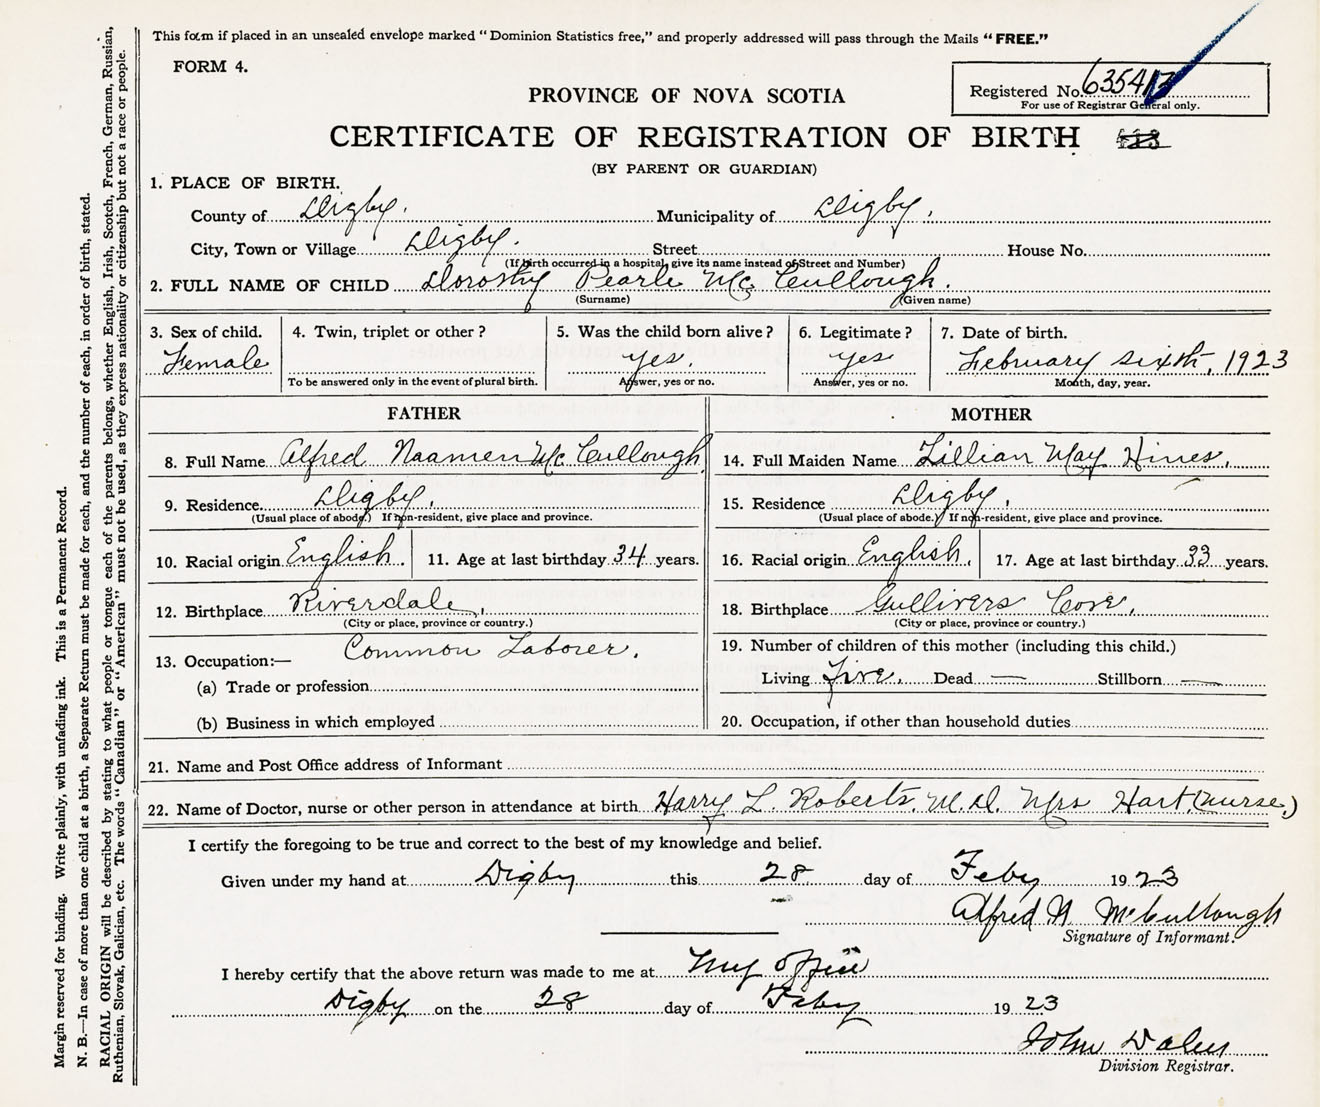 This form if placed in an unsealed envelope marked "Dominion Statistics free," and properly addressed will pass through the Mails "FREE."
FORM 4.
Registered No. 635417
For use of Registrar General only.
PROVINCE OF NOVA SCOTIA
CERTIFICATE OF REGISTRATION OF BIRTH
(BY PARENT OR GUARDIAN)
1. PLACE OF BIRTH.
County of Digby. Municipality of Digby.
City, Town or Village Digby. Street House No.
(If birth occurred in a hospital, give its name instead of Street and Number)
2. FULL NAME OF CHILD Dorothy Pearle McCullough.
(Surname) (Given name)
3. Sex of child. 4. Twin, triplet or other? 5. Was the child born alive? 6. Legitimate? 7. Date of birth.
Female yes. yes February sixth, 1923
To be answered only in the event of plural birth. Answer, yes or no. Answer, yes or no. Month, day, year.
FATHER MOTHER
8. Full Name Alfred Naamen McCullough 14. Full Maiden Name Lillian May Hines.
9. Residence Digby. 15. Residence Digby.
(Usual place of abode.) If non-resident, give place and province. (Usual place of abode.) If non-resident, give place and province.
10. Racial origin English. 11. Age at last birthday 34 years. 16. Racial origin English. 17. Age at last birthday 33 years.
12. Birthplace Riverdale. 18. Birthplace Gullivers Cove.
(City or place, province or country.) (City or place, province or country.)
13. Occupation:— Common Laborer. 19. Number of children of this mother (including this child.)
(a) Trade or profession Living Five. Dead — Stillborn —
(b) Business in which employed 20. Occupation, if other than household duties
21. Name and Post Office address of Informant
22. Name of Doctor, nurse or other person in attendance at birth Harry L. Roberts, M.D. Mrs Hart (nurse.)
I certify the foregoing to be true and correct to the best of my knowledge and belief.
Given under my hand at Digby this 28 day of Feby 1923
Alfred N McCullough
Signature of Informant.
I hereby certify that the above return was made to me at My office
Digby on the 28 day of Feby 1923
John Daley
Division Registrar.
Margin reserved for binding. Write plainly, with unfading ink. This is a Permanent Record.
N. B.—In case of more than one child at a birth, a Separate Return must be made for each, and the number of each, in order of birth, stated.
RACIAL ORIGIN will be described by stating to what people or tongue each of the parents belongs, whether English, Irish, Scotch, French, German, Russian,
Ruthenian, Slovak, Galician, etc. The words "Canadian" or "American" must not be used, as they express nationality or citizenship but not a race or people.